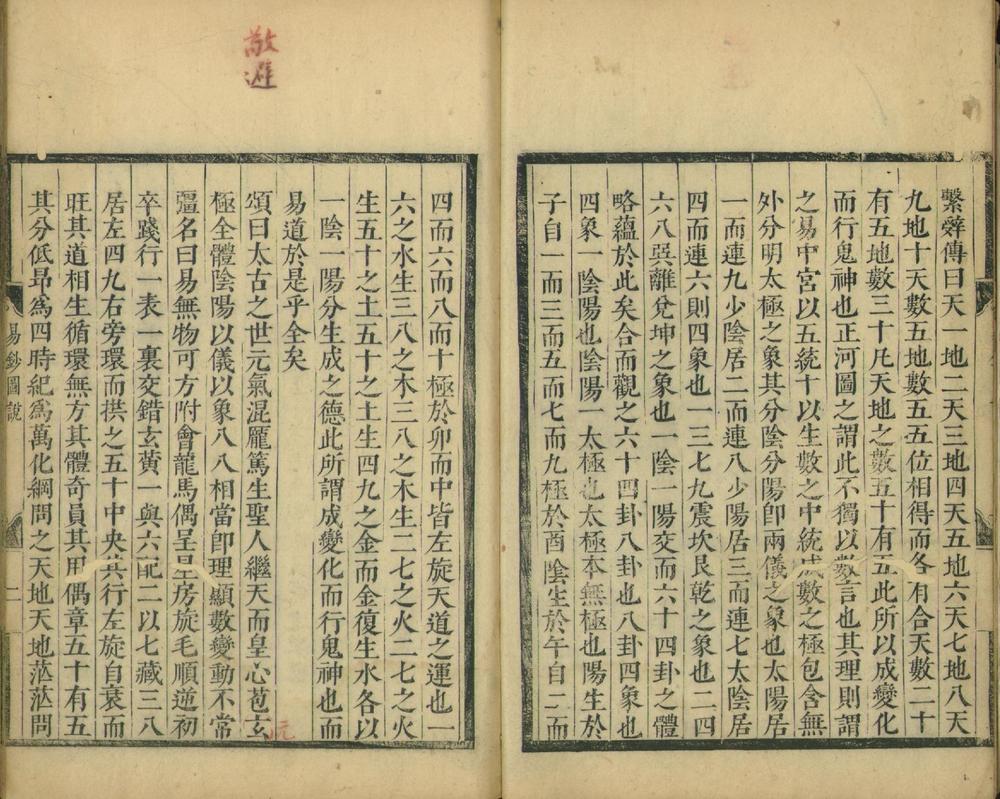 繫辭傳曰天一地二天三地四天五地六天七地八天
九地十天數五地數五五位相得而各有合天數二十
有五地數三十凡天地之數五十有五此所以成變化
而行鬼神也正河圖之謂此不獨以數言也其理則謂
之易中宮以五統十以生數之中統成數之極包含無
外分明太極之象其分陰分陽卽兩儀之象也太陽居
一而連九少陰居二而連八少陽居三而連七太陰居
四而連六則四象也一三七九震坎艮乾之象也二四
六八巽離兌坤之象也一陰一陽交而六十四卦之體
略蘊於此矣合而觀之六十四卦八卦也八卦四象也
四象一陰陽也陰陽一太極也太極本無極也陽生於
子自一而三而五而七而九極於酉陰生於午自二而
四而六而八而十極於卯而中皆左旋天道之運也一
六之水生三八之木三八之木生二七之火二七之火
生五十之土五十之土生四九之金而金復生水各以
一陰一陽分生成之德此所謂成變化而行鬼神也而
易道於是乎全矣
頌曰太古之世元氣混龎篤生聖人繼天而皇心苞玄
極全體陰陽以儀以象八八相當卽理顯數變動不常
彊名曰易無物可方附會龍馬偶呈星房旋毛順逆初
卒踐行一表一裏交錯玄黃一與六配二以七藏三八
居左四九右旁環而拱之五十中央其行左旋自衰而
旺其道相生循環無方其體奇員其用偶章五十有五
其分低昂爲四時紀爲萬化綱問之天地天地茫茫問
易鈔圖說
二
敬避
元